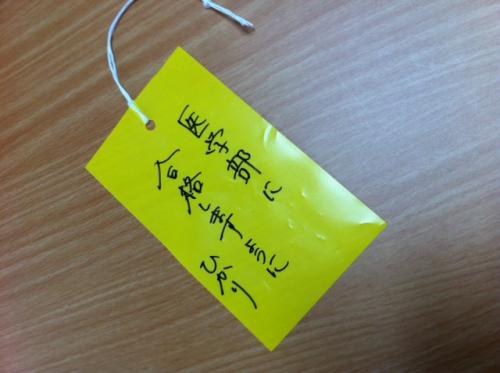 医学部に
合格しますように
ひかり